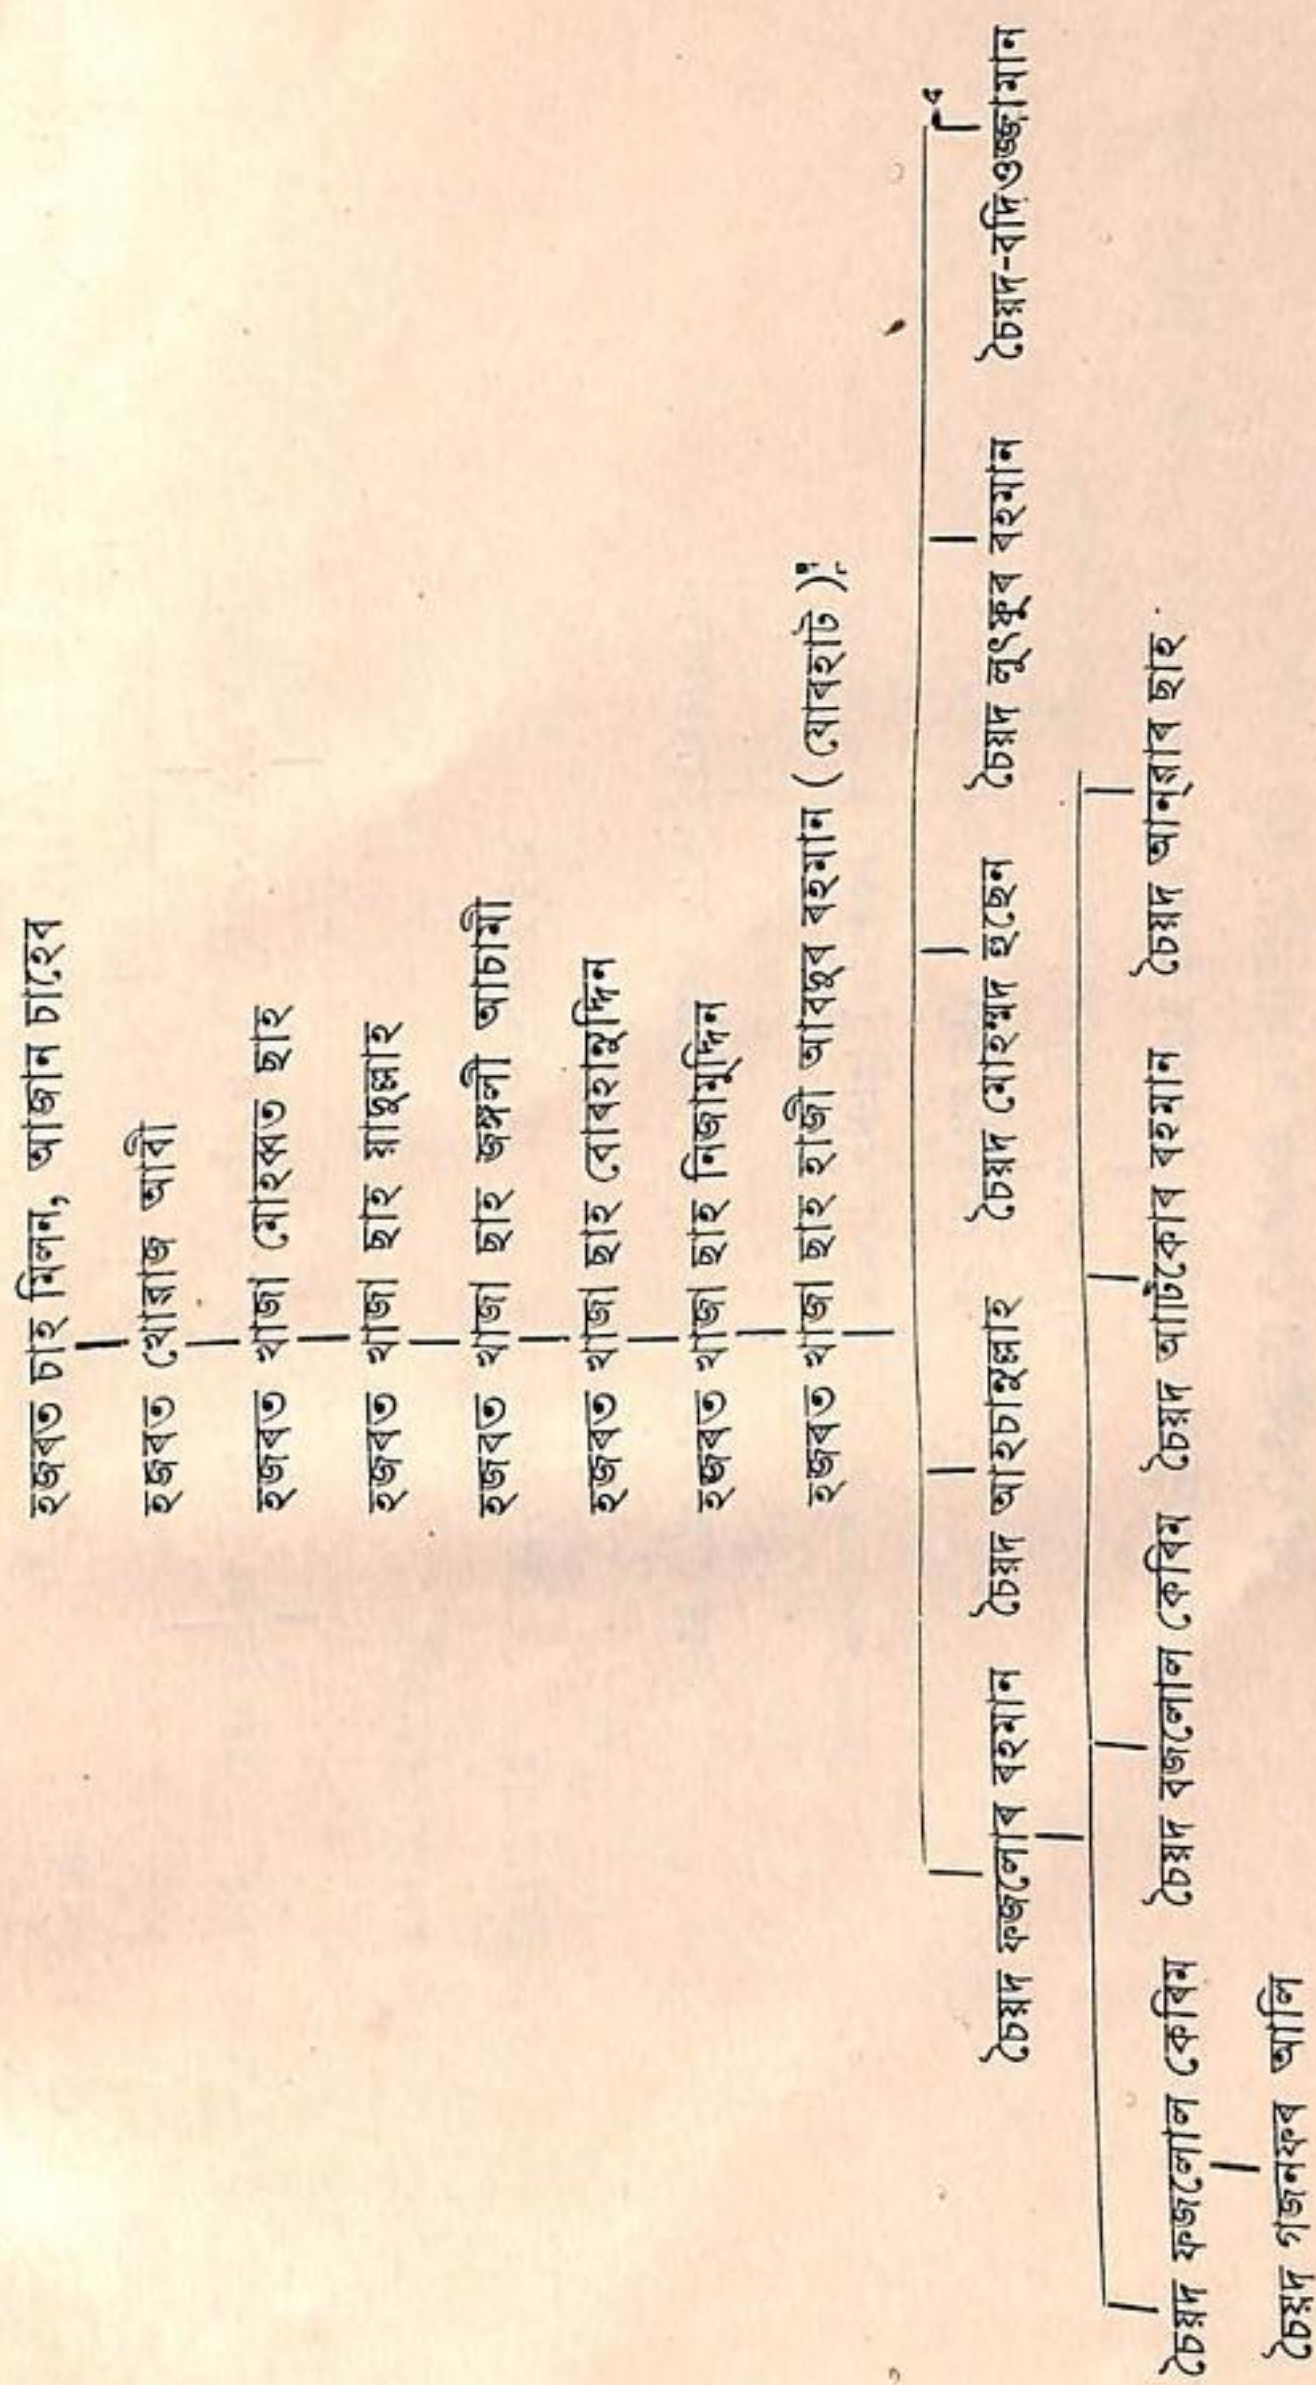 হজৰত চাহ মিলন, আজান চাহেব
হজৰত খোৱাজ আৰী
হজৰত খাজা মোহব্বত ছাহ
হজৰত খাজা ছাহ য়াদুল্লাহ
হজৰত খাজা ছাহ জঙ্গলী আচামী
হজৰত খাজা ছাহ বোৰহানুদ্দিন
হজৰত খাজা ছাহ নিজামুদ্দিন
হজৰত খাজা ছাহ হাজী আবদুৰ ৰহমান ( যোৰহাট )
চৈয়দ ফজলোৰ ৰহমান চৈয়দ আহচানুল্লাহ চৈয়দ মোহম্মদ হুছেন চৈয়দ লুৎফুৰ ৰহমান চৈয়দ-বদিওজ্জামান
চৈয়দ ফজলোল কেৰিম চৈয়দ বজলোল কেৰিম চৈয়দ আটিকোৰ ৰহমান চৈয়দ আনৱাৰ ছাহ
চৈয়দ গজনফৰ আলি